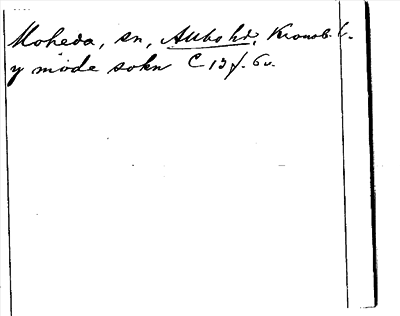 Moheda, sn, Allbo hd, Kronob. l.
y möde sokn C 13 f. 6 v.